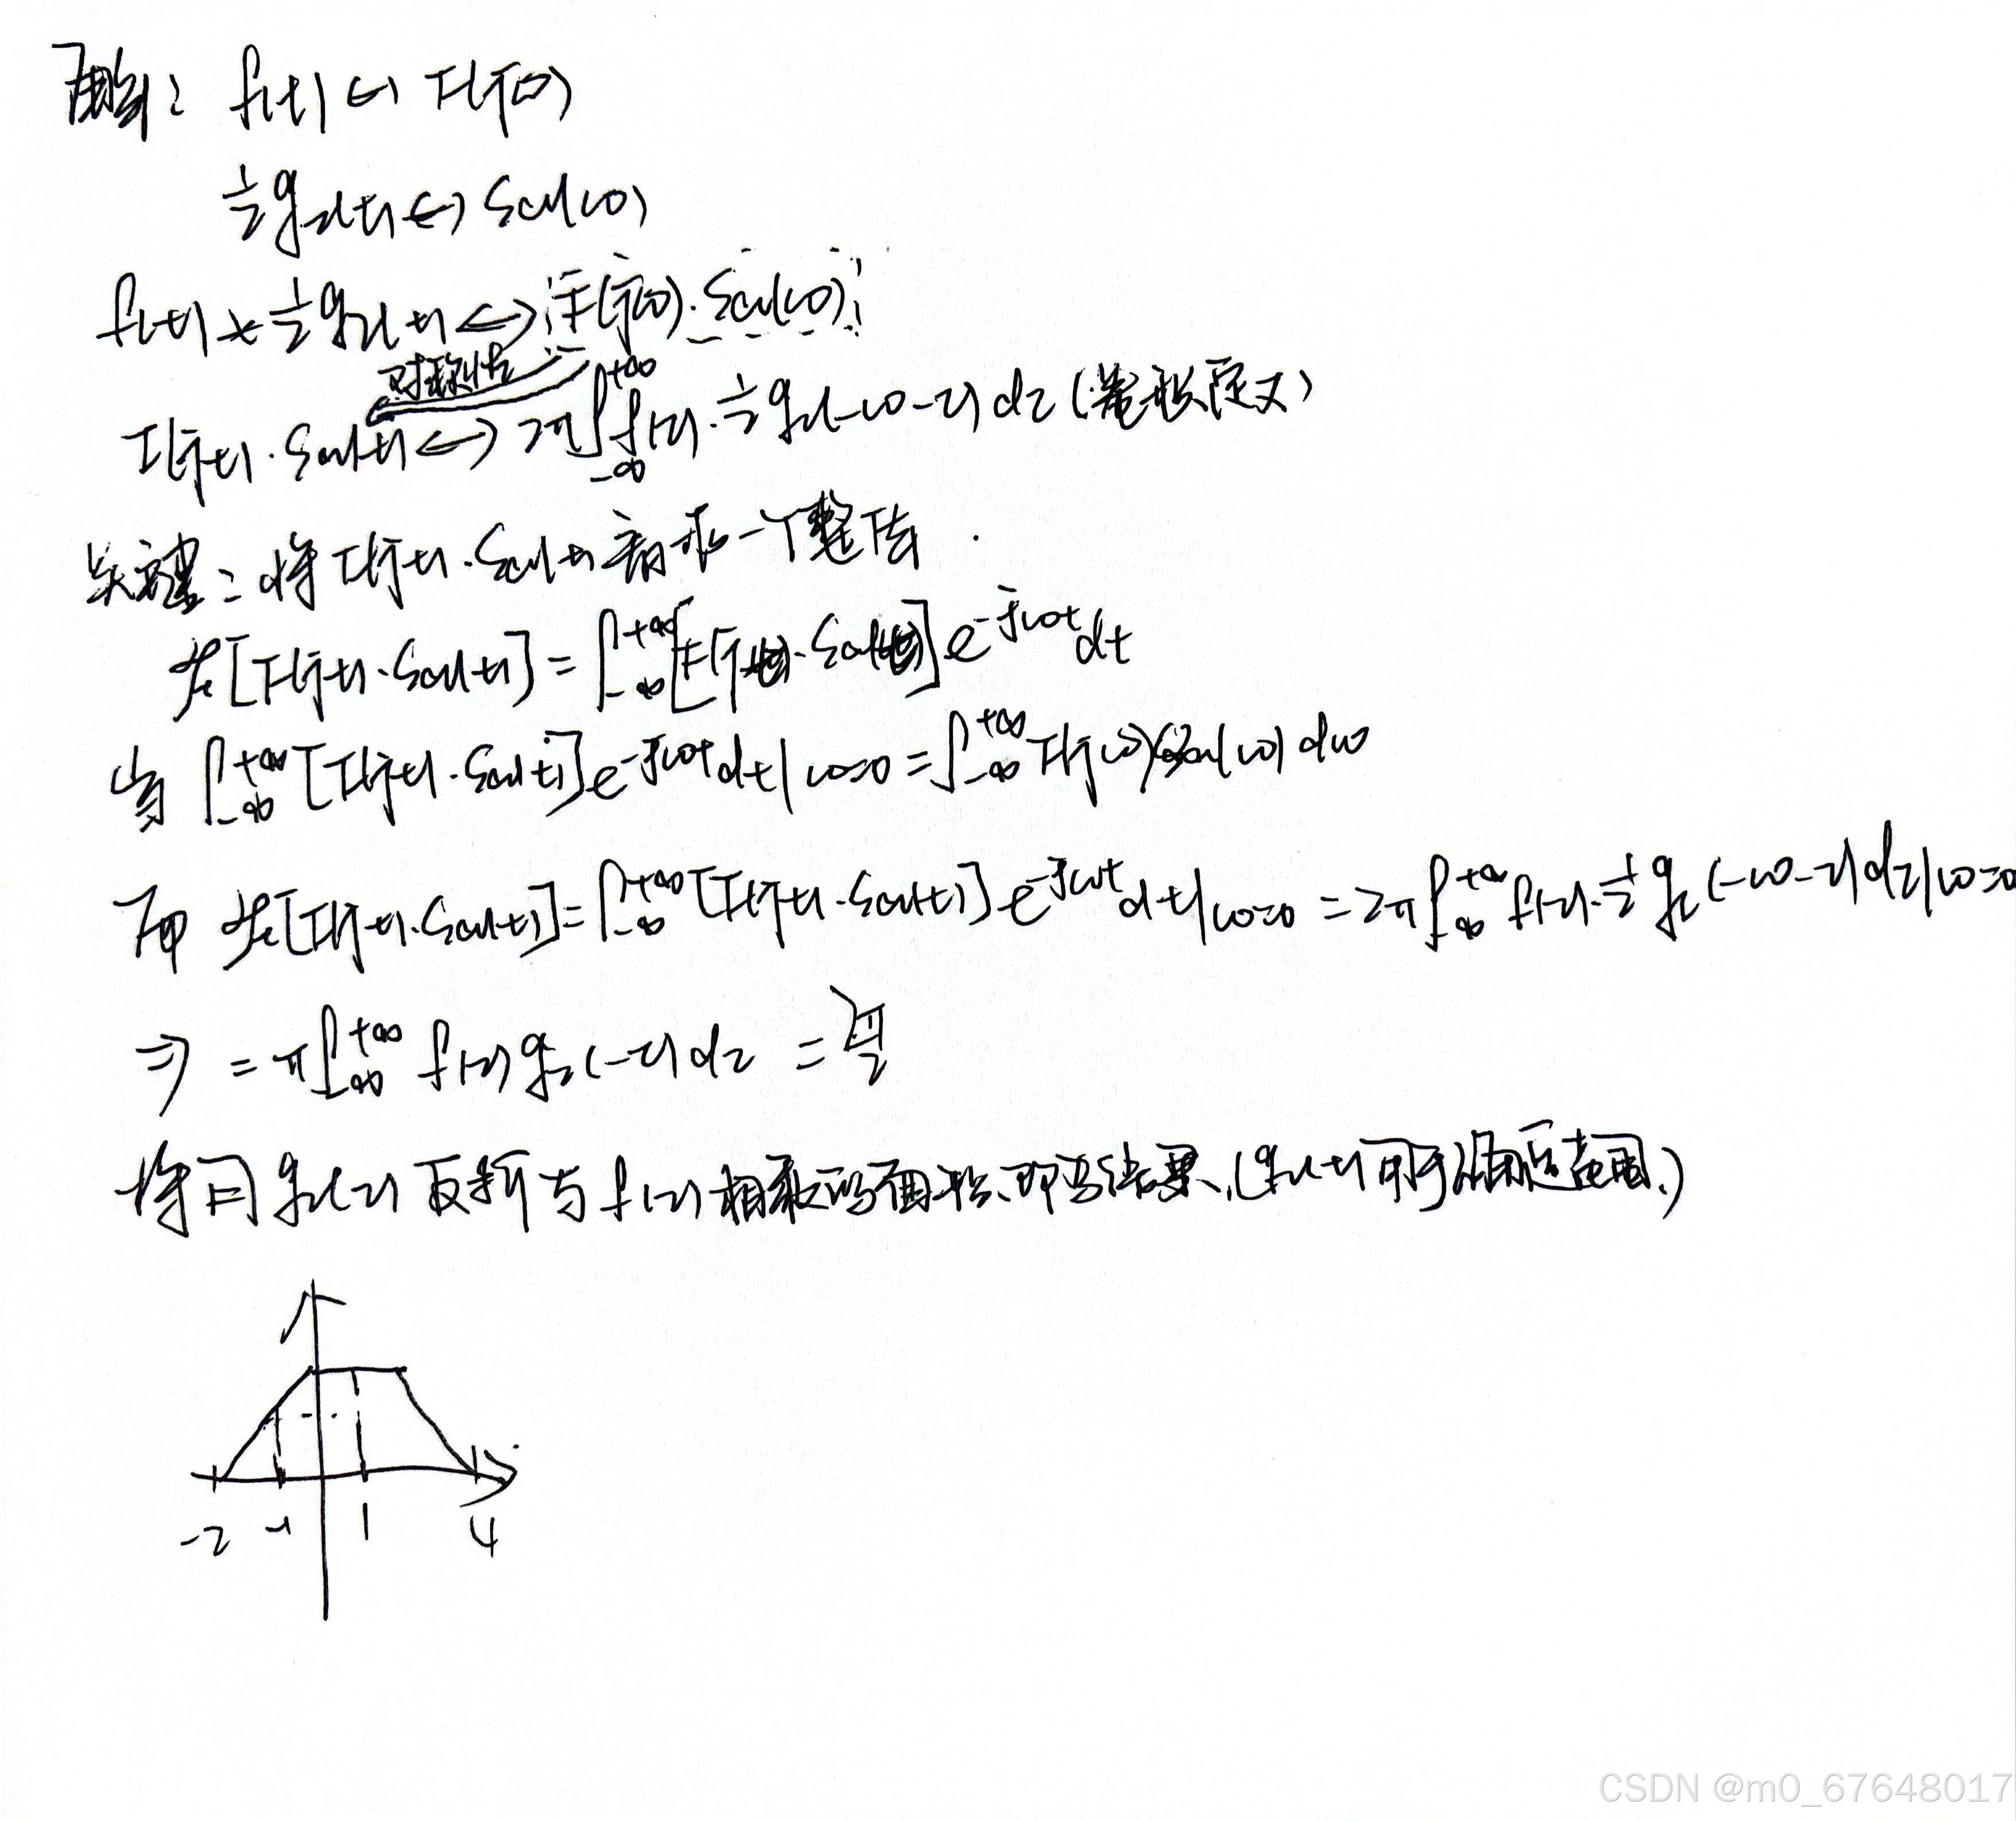 f(t) ↔ F(jω)
½g₂(t) ↔ Sa(ω)
f(t) * ½g₂(t) ↔ F(jω)·Sa(ω)
对称性
F(jt)·Sa(t) ↔ 2π∫₋∞^+∞ f(τ)·½g₂(-ω-τ)dτ (卷积定义)
关键：将F(jt)·Sa(t)看成一个整体
[F(jt)·Sa(t)] = ∫₋∞^+∞ [F(jt)·Sa(t)] e^-jωt dt
当 ∫₋∞^+∞ [F(jt)·Sa(t)] e^-jωt dt|ω=0 = ∫₋∞^+∞ F(jω)Sa(ω)dω
即 [F(jt)·Sa(t)] = ∫₋∞^+∞ [F(jt)·Sa(t)] e^-jωt dt|ω=0 = 2π∫₋∞^+∞ f(τ)·½g₂(-ω-τ)dτ|ω=0
⇒ = π∫₋∞^+∞ f(τ)g₂(-τ)dτ =
将 g₂(τ)反折与f(τ)相乘的面积,即为结果,(g₂(t)用于 范围,)
-2 -1 1 4
CSDN @m0_67648017